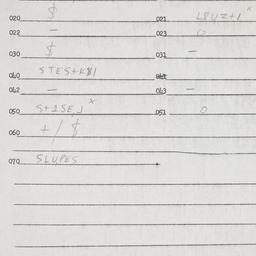 020 $ 021 L8U2+1 x
022 — 023 0
030 $ 031 —
040 STES+K$1 041
042 — 043 —
050 S+1SE,J x 051 0
060 + / $
070 SLUPES